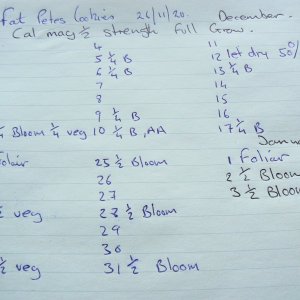 Fat Petes Cookies 26/11/20. December.
Cal mag ½ strength Full Grow.
4 11
5 ¼ B 12 let dry 50%
6 ¼ B 13 ¼ B
7 14
8 15
9 ¼ B 16
¼ Bloom ¼ veg 10 ¼ B, AA 17 ¼ B
25 ½ Bloom 1 Foliar
26 2 ½ Bloom
27 3 ½ Bloom
½ veg 28 ½ Bloom
29
30
½ veg 31 ½ Bloom